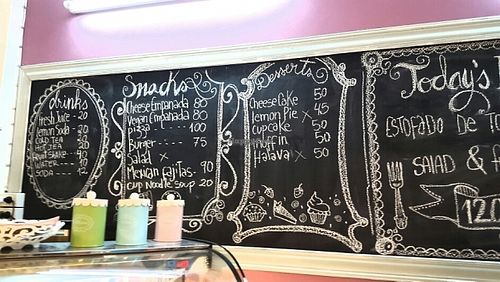 drinks
Fresh Juice - 20
Lemon Soda - 20
COLD TEA
HOT TEA
FRUIT SHAKE - 40
WATER - 10
SODA - - - 12
Snacks
Cheese Empanada 80
Vegan Empanada 80
pizza - - - 100
Burger - - - 75
Salad x
Mexican Fajitas - 90
Cup Noodle Soup 20
Desserts
Cheese Cake 50
Lemon Pie x 45
Cupcake 50
Muffin
Halava x 50
Today's
ESTOFADO De
SALAD &
120